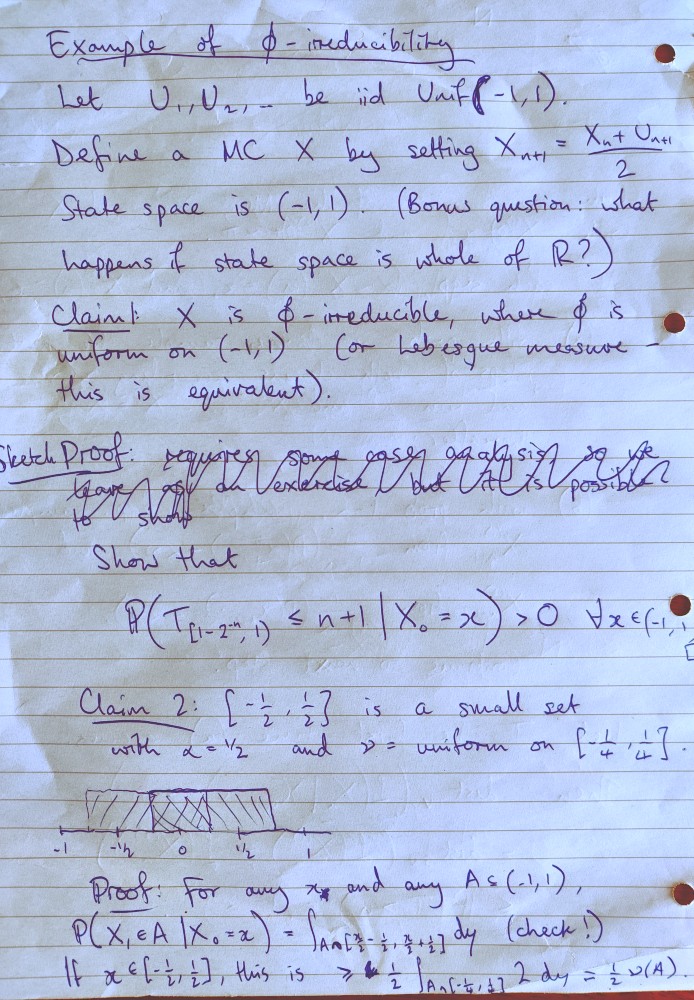 Example of ϕ-irreducibility
Let U₁, U₂, ... be iid Unif(-1,1).
Define a MC X by setting Xₙ₊₁ = (Xₙ + Uₙ₊₁)/2
State space is (-1,1). (Bonus question: what
happens if state space is whole of ℝ?)
Claim 1: X is ϕ-irreducible, where ϕ is
uniform on (-1,1) (or Lebesgue measure -
this is equivalent).
Sketch Proof: requires some case analysis so we
leave as an exercise, but it is possible
to show
Show that
ℙ(T_[1-2⁻ⁿ,1) ≤ n+1 | X₀ = x) > 0 ∀x∈(-1,
Claim 2: [-1/2, 1/2] is a small set
with α = 1/2 and ν = uniform on [-1/4, 1/4].
-1 -1/2 0 1/2 1
Proof: For any x and any A ⊆ (-1,1),
ℙ(X₁ ∈ A | X₀ = x) = ∫_{A∩[x/2 - 1/2, x/2 + 1/2]} dy (check!)
If x ∈ [-1/2, 1/2], this is ≥ 1/2 ∫_{A∩[-1/4, 1/4]} 2 dy = 1/2 ν(A).